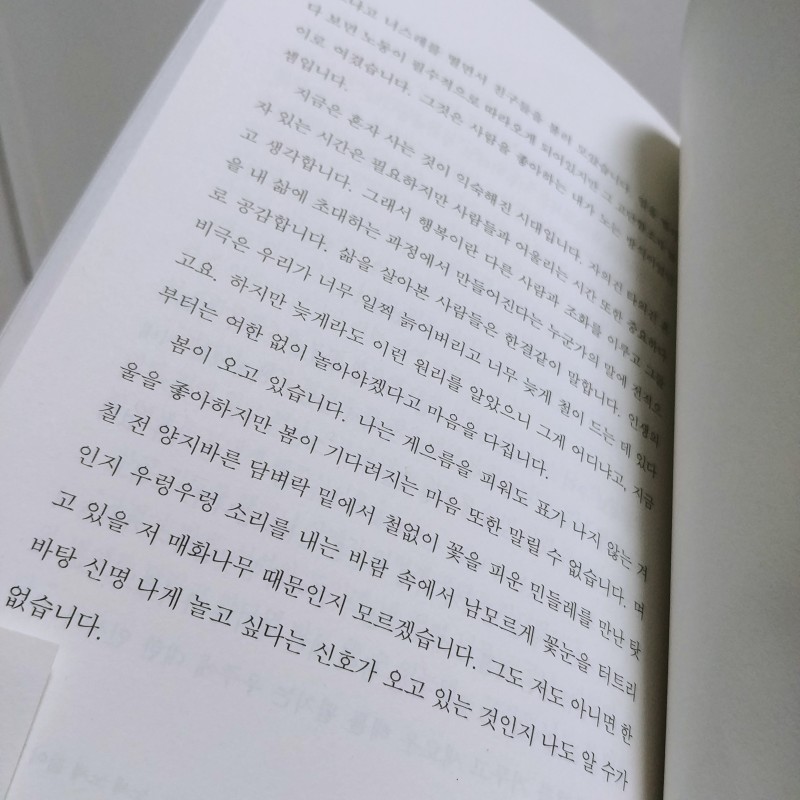 너스레를 떨면서 친구들을 불러 모았습니다.
다 보면 노동이 필수적으로 따라오게 되어있지만 그
이로 여겼습니다. 그것은 사람을 좋아하는 내가 노는
셈입니다.
지금은 혼자 사는 것이 익숙해진 시대입니다. 자의건 타의건 혼
자 있는 시간은 필요하지만 사람들과 어울리는 시간 또한 중요하다
고 생각합니다. 그래서 행복이란 다른 사람과 조화를 이루고 그들
을 내 삶에 초대하는 과정에서 만들어진다는 누군가의 말에 전적으
로 공감합니다. 삶을 살아본 사람들은 한결같이 말합니다. 인생의
비극은 우리가 너무 일찍 늙어버리고 너무 늦게 철이 드는 데 있다
고요. 하지만 늦게라도 이런 원리를 알았으니 그게 어디냐고, 지금
부터는 여한 없이 놀아야겠다고 마음을 다집니다.
봄이 오고 있습니다. 나는 게으름을 피워도 표가 나지 않는 겨
울을 좋아하지만 봄이 기다려지는 마음 또한 말릴 수 없습니다. 며
칠 전 양지바른 담벼락 밑에서 철없이 꽃을 피운 민들레를 만난 탓
인지 우렁우렁 소리를 내는 바람 속에서 남모르게 꽃눈을 터트리
고 있을 저 매화나무 때문인지 모르겠습니다. 그도 저도 아니면 한
바탕 신명 나게 놀고 싶다는 신호가 오고 있는 것인지 나도 알 수가
없습니다.